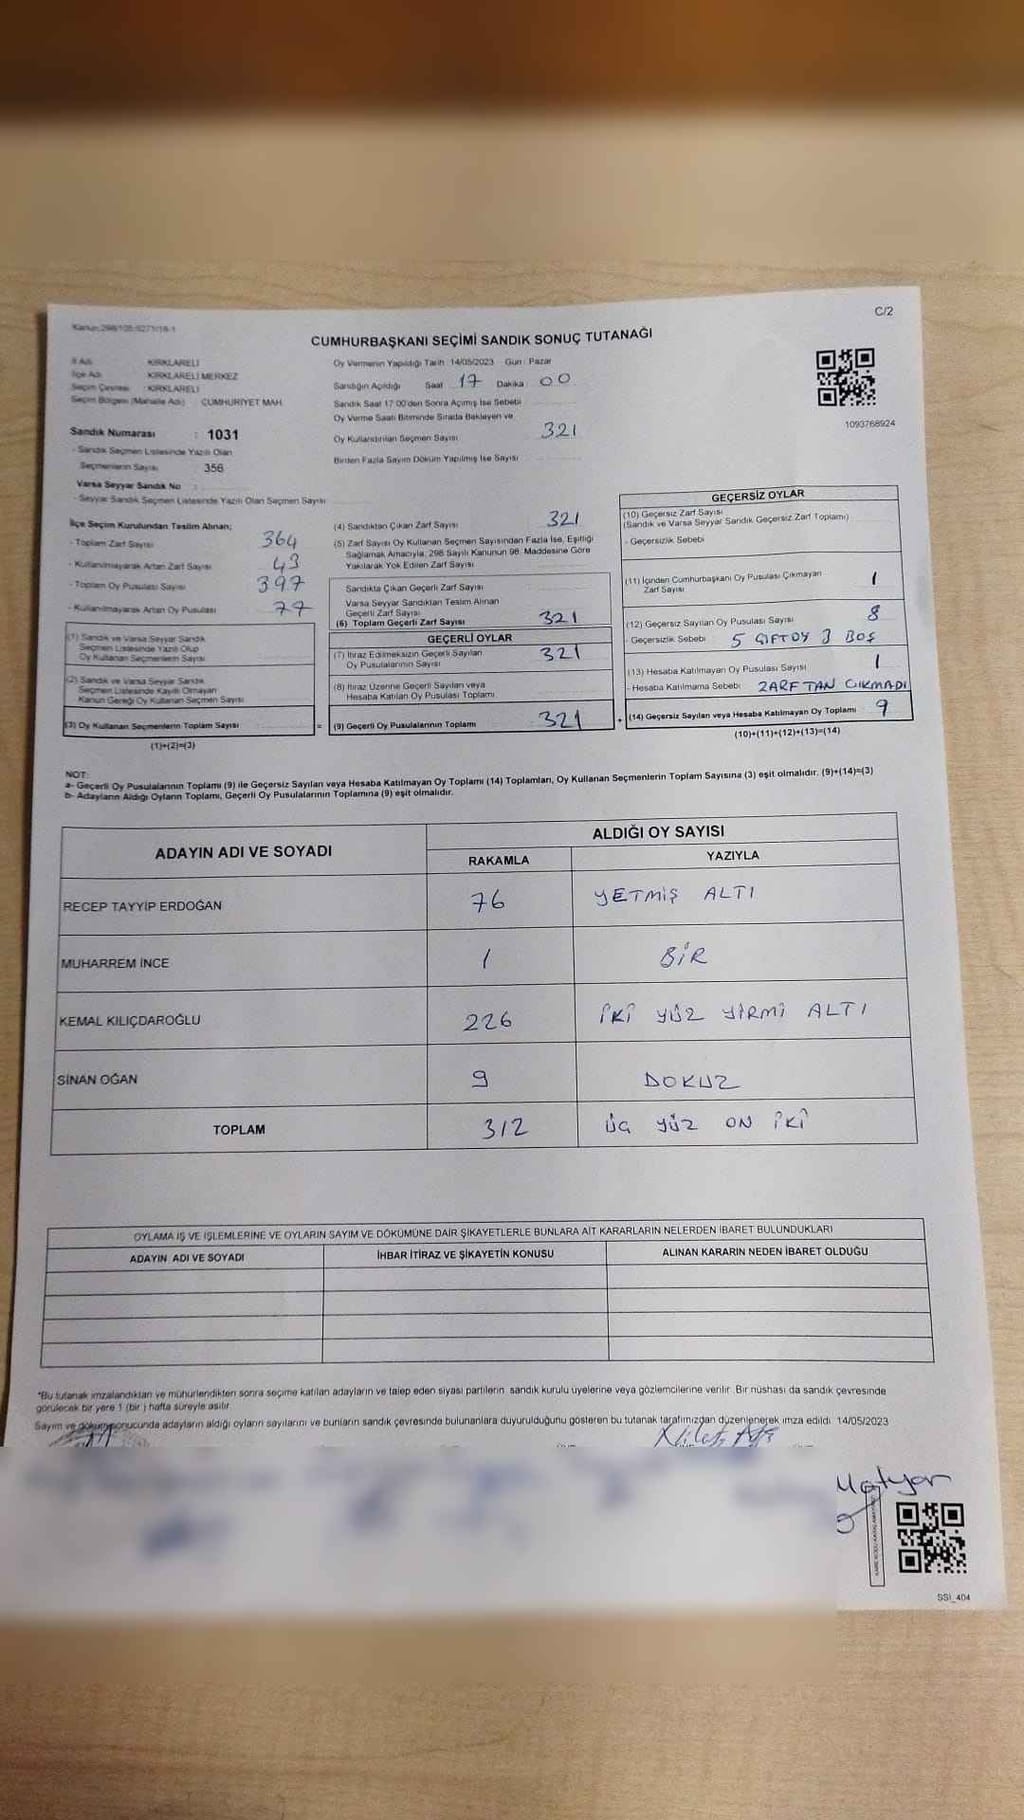 C/2
CUMHURBAŞKANI SEÇİMİ SANDIK SONUÇ TUTANAĞI
İl Adı : KIRKLARELİ
İlçe Adı : KIRKLARELİ MERKEZ
Seçim Çevresi : KIRKLARELİ
Seçim Bölgesi (Mahalle Adı) CUMHURİYET MAH.
Sandık Numarası : 1031
- Sandık Seçmen Listesinde Yazılı Olan
Seçmenlerin Sayısı 356
Varsa Seyyar Sandık No :
- Seyyar Sandık Seçmen Listesinde Yazılı Olan Seçmen Sayısı
Oy Vermenin Yapıldığı Tarih :14/05/2023 Gün: Pazar
Sandığın Açıldığı Saat 17 Dakika 00
Sandık Saat 17:00'den Sonra Açılmış İse Sebebi
Oy Verme Saati Bitiminde Sırada Bekleyen ve
Oy Kullandırılan Seçmen Sayısı 321
Birden Fazla Sayım Döküm Yapılmış İse Sayısı
1093768924
İlçe Seçim Kurulundan Teslim Alınan;
- Toplam Zarf Sayısı 364
- Kullanılmayarak Artan Zarf Sayısı 43
- Toplam Oy Pusulası Sayısı 397
- Kullanılmayarak Artan Oy Pusulası 77
(1) Sandık ve Varsa Seyyar Sandık
Seçmen Listesinde Yazılı Olup
Oy Kullanan Seçmenlerin Sayısı
(2) Sandık ve Varsa Seyyar Sandık
Seçmen Listesinde Kayıtlı Olmayan
Kanun Gereği Oy Kullanan Seçmen Sayısı
(3) Oy Kullanan Seçmenlerin Toplam Sayısı =
(1)+(2)=(3)
(4) Sandıktan Çıkan Zarf Sayısı 321
(5) Zarf Sayısı Oy Kullanan Seçmen Sayısından Fazla İse, Eşitliği
Sağlamak Amacıyla, 298 Sayılı Kanunun 98. Maddesine Göre
Yakılarak Yok Edilen Zarf Sayısı
Sandıkta Çıkan Geçerli Zarf Sayısı
Varsa Seyyar Sandıktan Teslim Alınan
Geçerli Zarf Sayısı
(6) Toplam Geçerli Zarf Sayısı 321
GEÇERLİ OYLAR
(7) İtiraz Edilmeksizin Geçerli Sayılan
Oy Pusulalarının Sayısı 321
(8) İtiraz Üzerine Geçerli Sayılan veya
Hesaba Katılan Oy Pusulası Toplamı
(9) Geçerli Oy Pusulalarının Toplamı 321 +
GEÇERSİZ OYLAR
(10) Geçersiz Zarf Sayısı
(Sandık ve Varsa Seyyar Sandık Geçersiz Zarf Toplamı)
- Geçersizlik Sebebi
(11) İçinden Cumhurbaşkanı Oy Pusulası Çıkmayan
Zarf Sayısı 1
(12) Geçersiz Sayılan Oy Pusulası Sayısı 8
- Geçersizlik Sebebi 5 ÇİFTOY 3 BOŞ
(13) Hesaba Katılmayan Oy Pusulası Sayısı 1
- Hesaba Katılmama Sebebi ZARFTAN ÇIKMADI
(14) Geçersiz Sayılan veya Hesaba Katılmayan Oy Toplamı 9
(10)+(11)+(12)+(13)=(14)
NOT:
a- Geçerli Oy Pusulalarının Toplamı (9) ile Geçersiz Sayılan veya Hesaba Katılmayan Oy Toplamı (14) Toplamları, Oy Kullanan Seçmenlerin Toplam Sayısına (3) eşit olmalıdır. (9)+(14)=(3)
b- Adayların Aldığı Oyların Toplamı, Geçerli Oy Pusulalarının Toplamına (9) eşit olmalıdır.
ADAYIN ADI VE SOYADI ALDIĞI OY SAYISI
RAKAMLA YAZIYLA
RECEP TAYYİP ERDOĞAN 76 YETMİŞ ALTI
MUHARREM İNCE 1 BİR
KEMAL KILIÇDAROĞLU 226 İKİ YÜZ YİRMİ ALTI
SİNAN OĞAN 9 DOKUZ
TOPLAM 312 ÜÇ YÜZ ON İKİ
OYLAMA İŞ VE İŞLEMLERİNE VE OYLARIN SAYIM VE DÖKÜMÜNE DAİR ŞİKAYETLERLE BUNLARA AİT KARARLARIN NELERDEN İBARET BULUNDUKLARI
ADAYIN ADI VE SOYADI İHBAR İTİRAZ VE ŞİKAYETİN KONUSU ALINAN KARARIN NEDEN İBARET OLDUĞU
*Bu tutanak imzalandıktan ve mühürlendikten sonra seçime katılan adayların ve talep eden siyasi partilerin sandık kurulu üyelerine veya gözlemcilerine verilir. Bir nüshası da sandık çevresinde
görülecek bir yere 1 (bir ) hafta süreyle asılır.
Sayım ve döküm sonucunda adayların aldığı oyların sayılarını ve bunların sandık çevresinde bulunanlara duyurulduğunu gösteren bu tutanak tarafımızdan düzenlenerek imza edildi. 14/05/2023
SSI_404